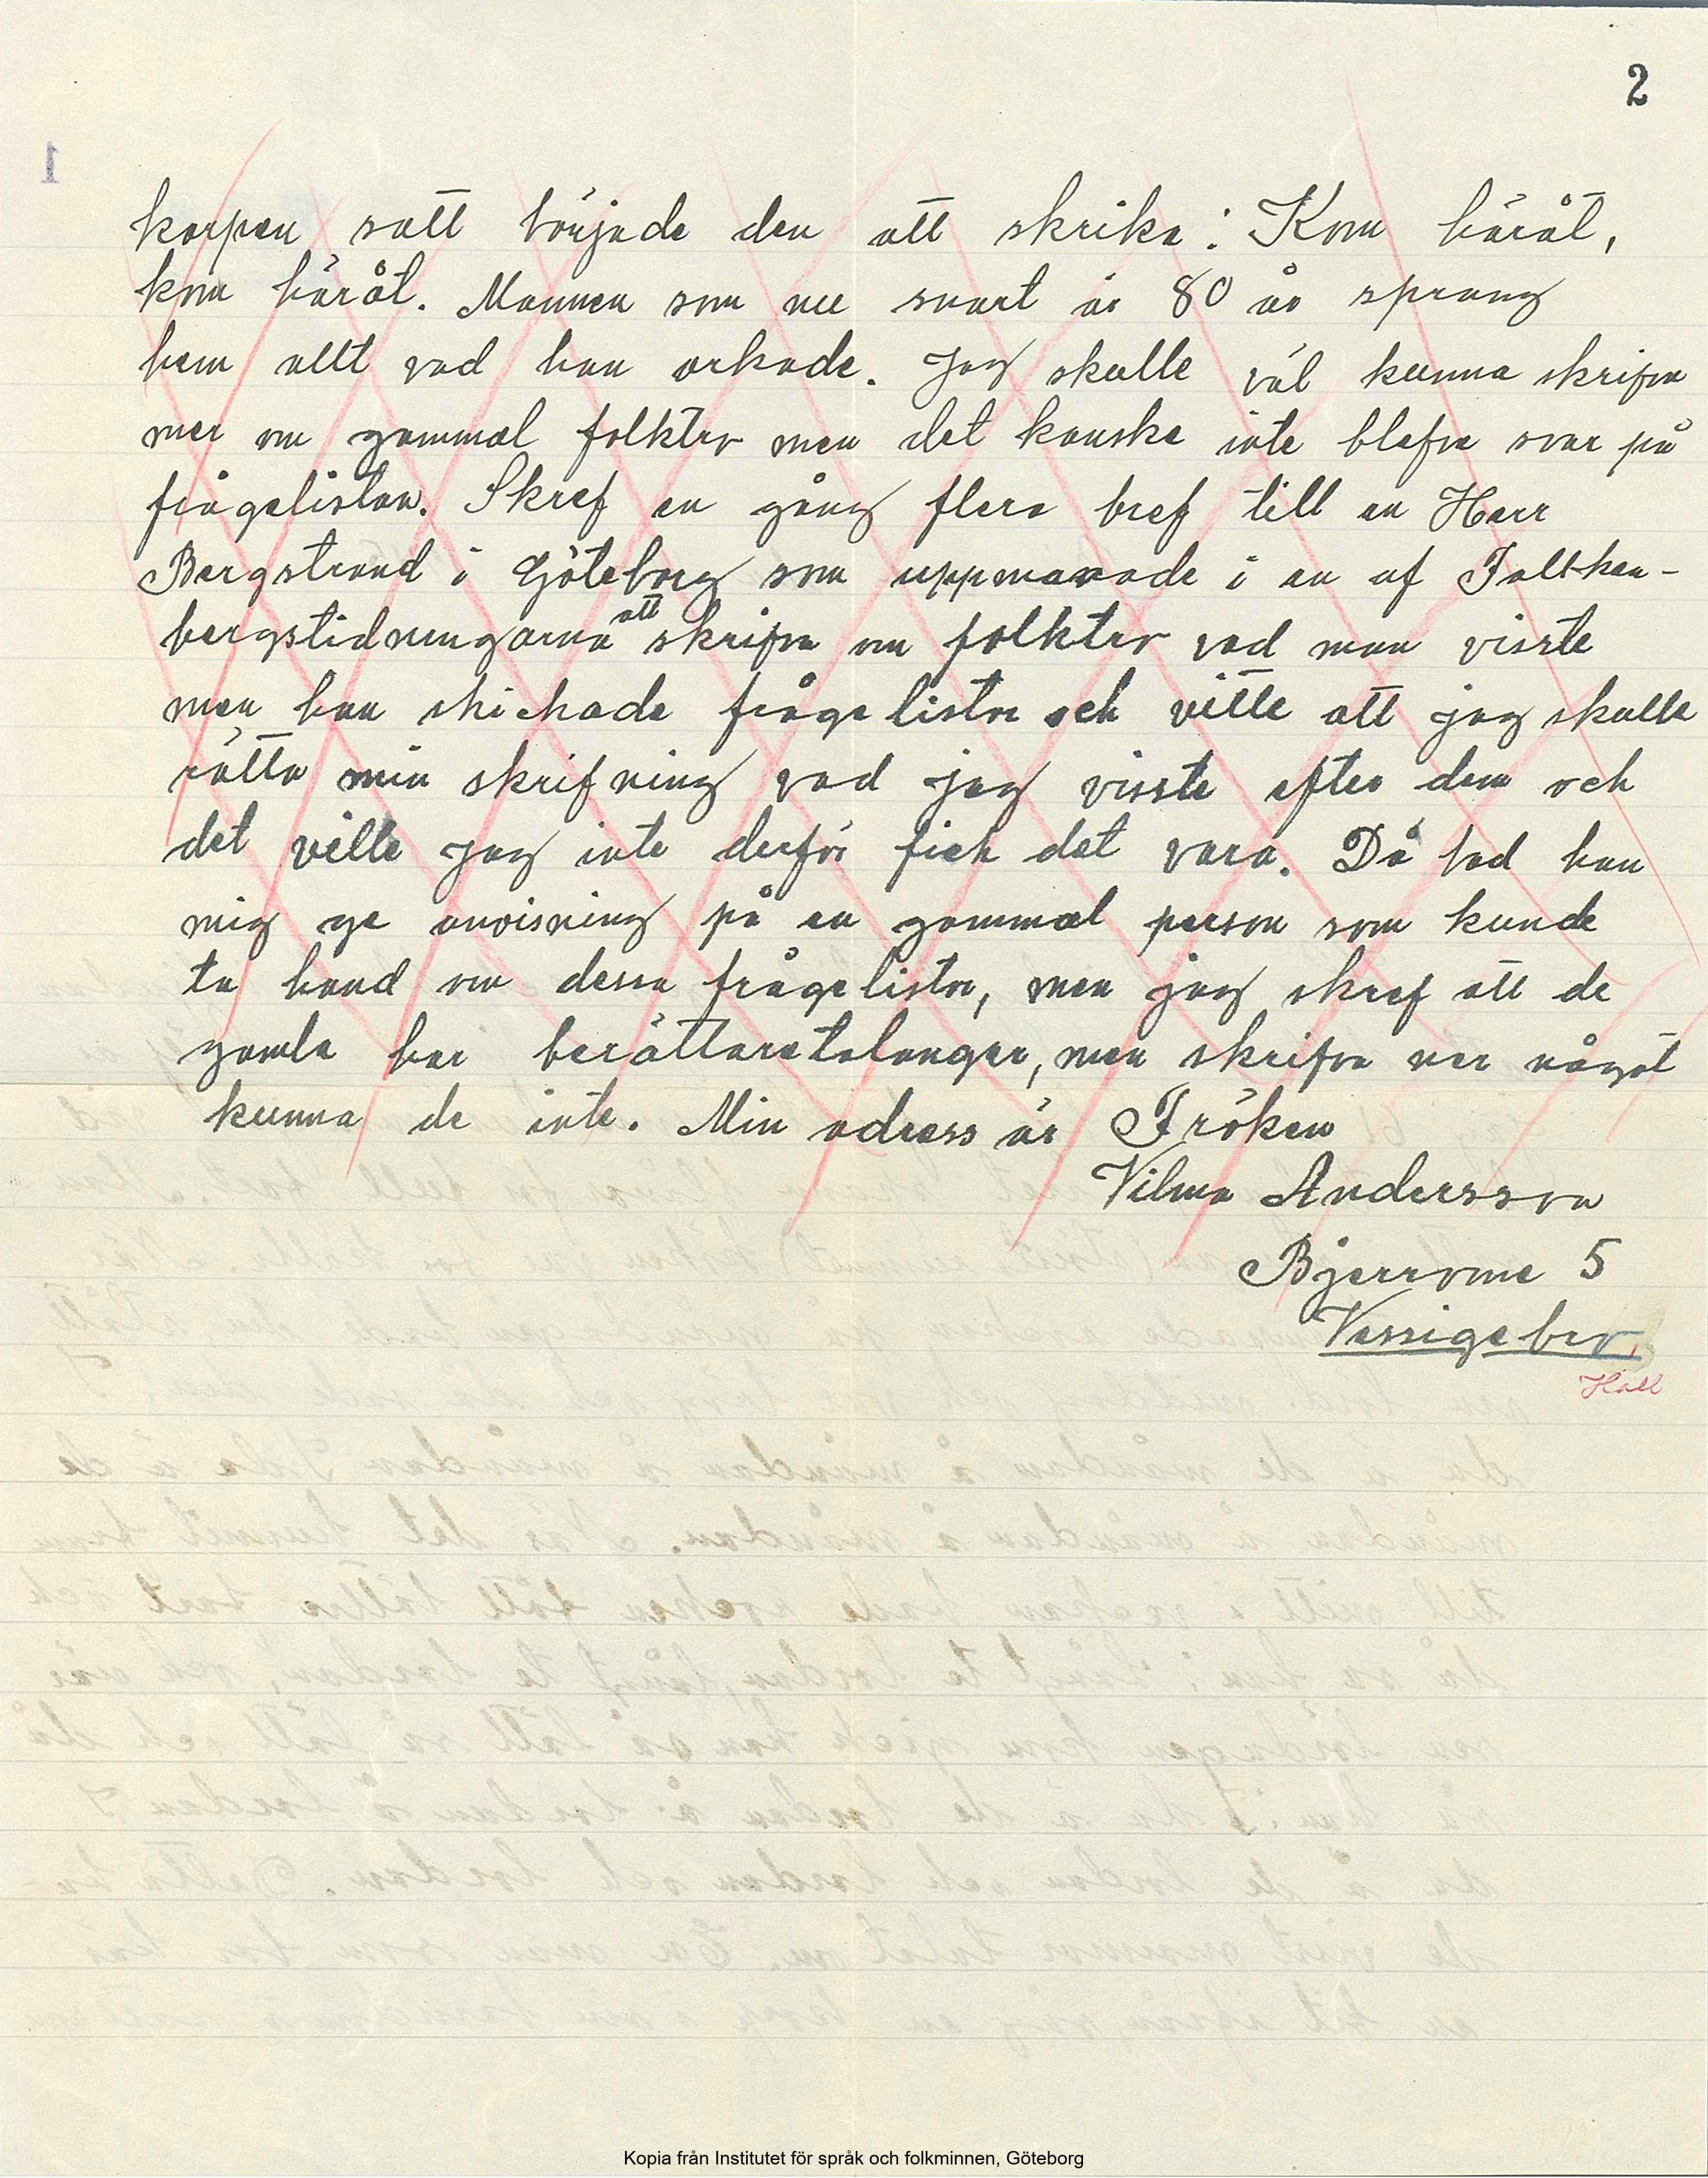 2
korpen satt började den att skrika: Kom häråt,
kom häråt. Mannen som nu snart är 80 år sprang
hem allt vad han orkade. Jag skulle väl kunna skrifva
mer om gammal folktro men det kanske inte blefve svar på
frågelistan. Skref en gång flera bref till en Herr
Bergstrand i Göteborg som uppmanade i en af Falken-
bergstidningarna att skrifva om folktro vad man visste
men han skickade frågelistor och ville att jag skulle
rätta min skrifning vad jag visste efter dem och
det ville jag inte derför fick det vara. Då bad han
mig ge anvisning på en gammal person som kunde
ta hand om dessa frågelistor, men jag skref att de
gamla har berättaretalanger, men skrifva ner något
kunna de inte. Min adress är Fröken
Vilma Andersson
Bjerrome 5
Vessigebro
Hall
Kopia från Institutet för språk och folkminnen, Göteborg